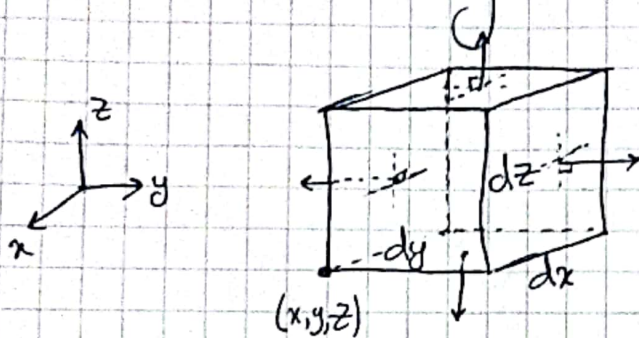 z
y
x
dz
dy
dx
(x,y,z)